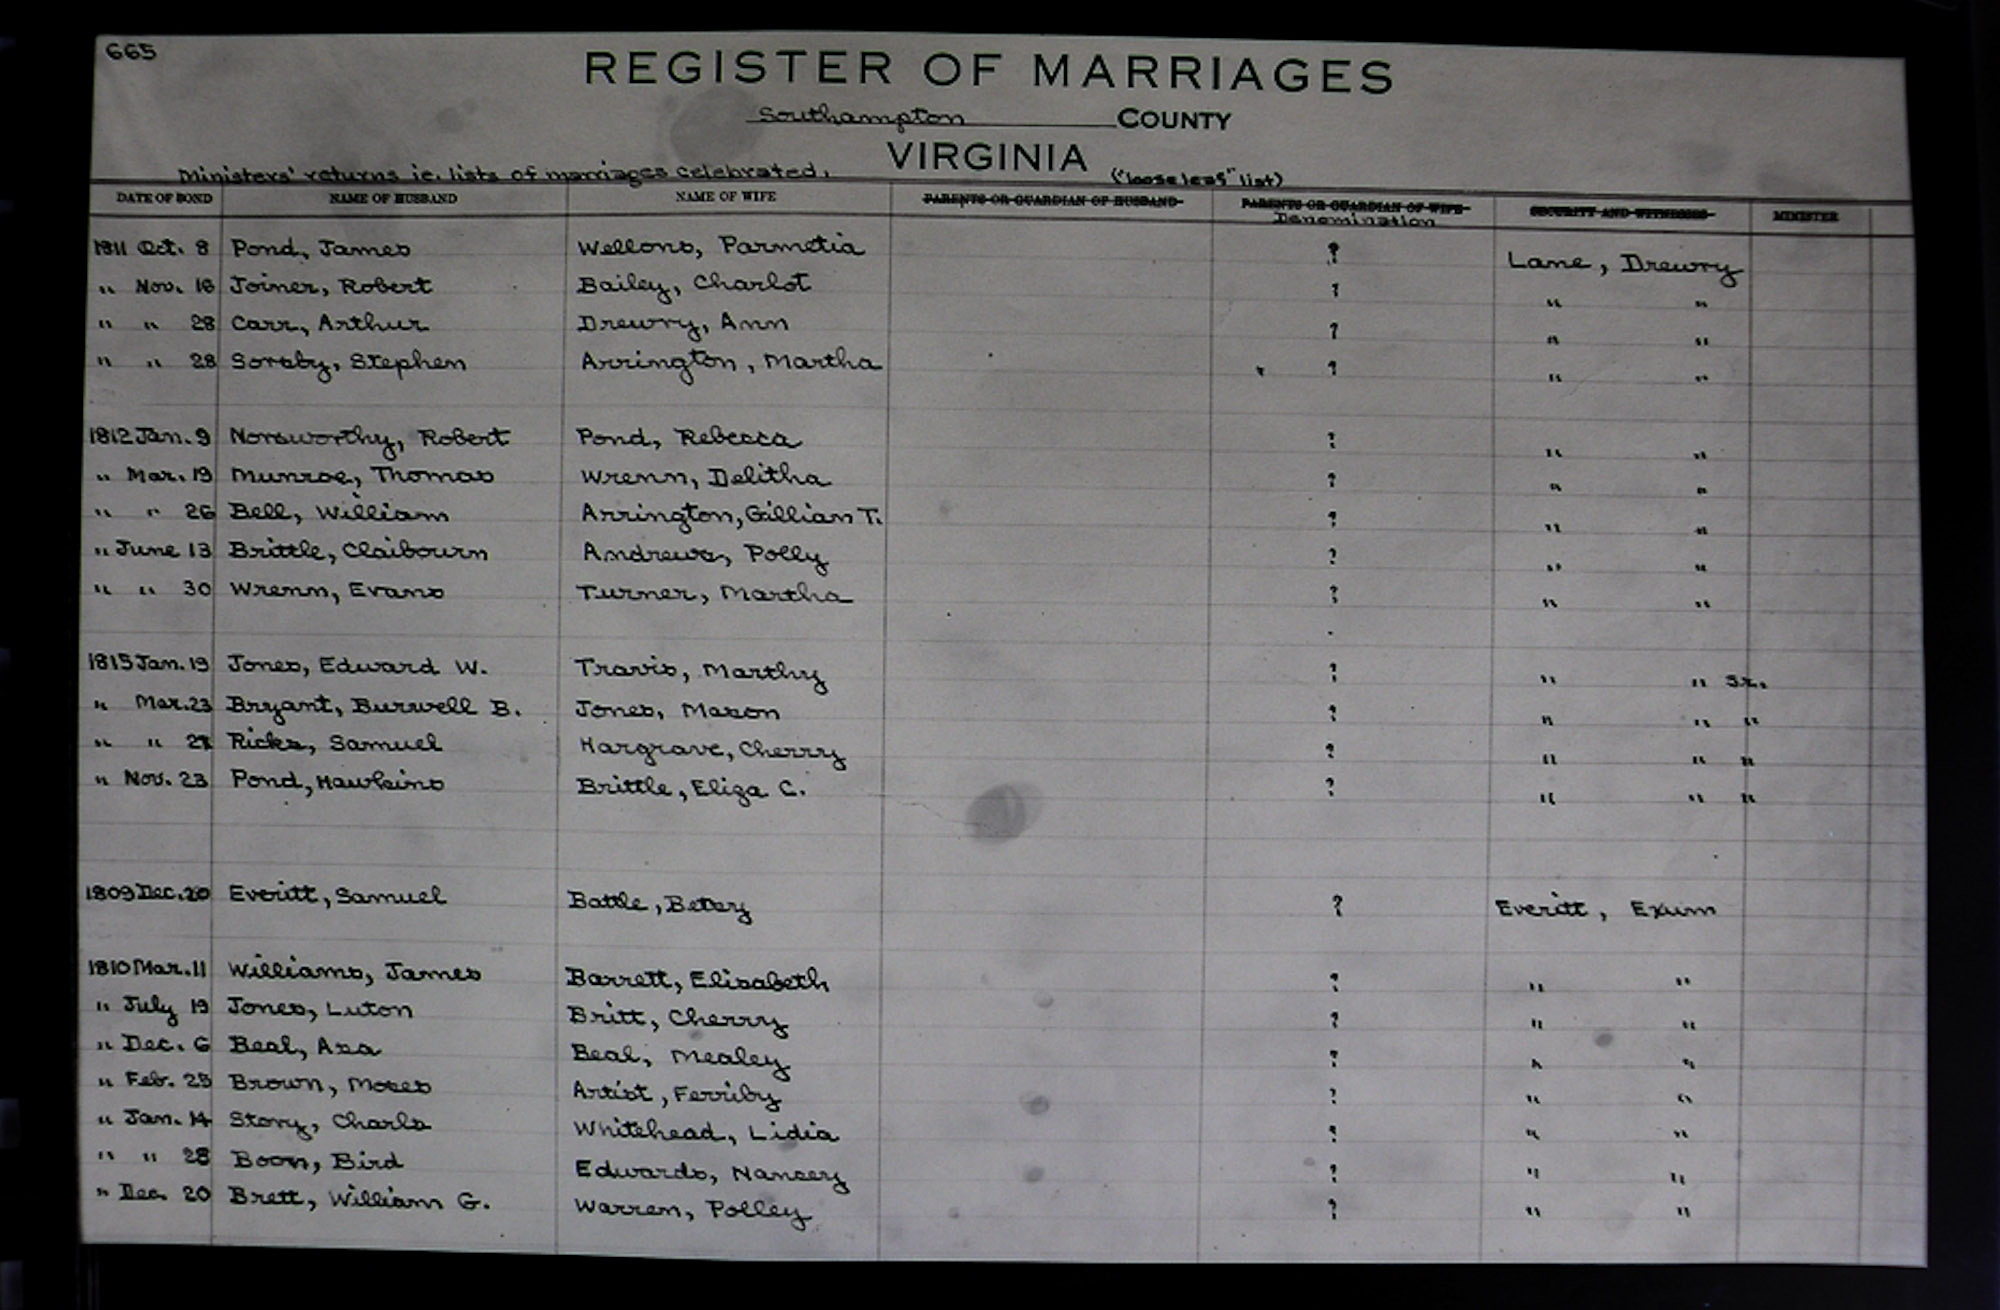 665
REGISTER OF MARRIAGES
Southampton COUNTY
VIRGINIA
Ministers' returns ie. lists of marriages celebrated. ("looseleaf" list)
DATE OF BOND NAME OF HUSBAND NAME OF WIFE PARENTS OR GUARDIAN OF HUSBAND PARENTS OR GUARDIAN OF WIFE SECURITY AND WITNESSES MINISTER
Denomination
1811 Oct. 8 Pond, James Wellons, Parmetia ? Lane, Drewry
" Nov. 16 Joiner, Robert Bailey, Charlot ? " "
" " 28 Carr, Arthur Drewry, Ann ? " "
" " 28 Soreby, Stephen Arrington, Martha ? " "
1812 Jan. 9 Norsworthy, Robert Pond, Rebecca ? " "
" Mar. 19 Munroe, Thomas Wrenn, Delitha ? " "
" " 26 Bell, William Arrington, Gillian T. ? " "
" June 13 Brittle, Claibourn Andrews, Polly ? " "
" " 30 Wrenn, Evans Turner, Martha ? " "
1815 Jan. 19 Jones, Edward W. Travis, Marthy ? " " Sr.
" Mar. 23 Bryant, Burwell B. Jones, Mason ? " " "
" " Ricks, Samuel Hargrave, Cherry ? " " "
" Nov. 23 Pond, Hawkins Brittle, Eliza C. ? " " "
1809 Dec. 20 Everitt, Samuel Battle, Betsey ? Everitt, Exum
1810 Mar. 11 Williams, James Barrett, Elisabeth ? " "
" July 19 Jones, Luton Britt, Cherry ? " "
" Dec. 6 Beal, Asa Beal, Mealey ? " "
" Feb. 25 Brown, Moses Artist, Ferriby ? " "
" Jan. 14 Story, Charls Whitehead, Lidia ? " "
" " 28 Boon, Bird Edwards, Nancey ? " "
" Dec. 20 Brett, William G. Warren, Polley ? " "